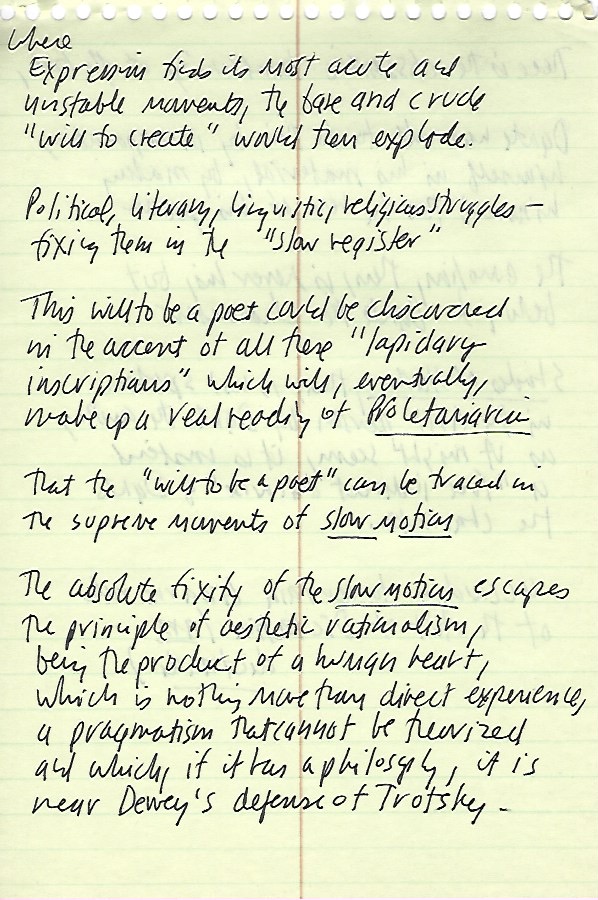 where
Expression finds its most acute and
unstable moments, the base and crude
"will to create" would then explode.
Political, literary, linguistic, religious struggles –
fixing them in the "slow register"
This will to be a poet could be discovered
in the accent of all these "lapidary
inscriptions" which will, eventually,
make up a real reading of Proletariaria
that the "will to be a poet" can be traced in
the supreme moments of slow motion
The absolute fixity of the slow motion escapes
the principle of aesthetic rationalism,
being the product of a human heart,
which is nothing more than direct experience,
a pragmatism that cannot be theorized
and which, if it has a philosophy, it is
near Dewey's defense of Trotsky –